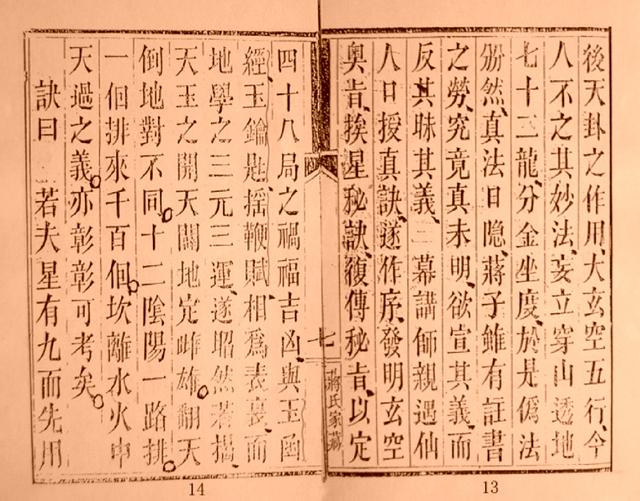 後天卦之作用、大玄空五行、今
人不之其妙法、妄立穿山透地
七十二龍、分金坐度、於是僞法
紛然、真法日隱、蔣子雖有註書
之勞、究竟真未明、欲宣其義、而
反其昧其義、幕講師親遇仙
人口授真訣、遂作序、發明玄空
奧旨、挨星秘訣、復傳秘旨、以定
七
蔣氏家藏
四十八局之禍福吉凶、與玉函
經、玉鑰匙、搖鞭賦、相爲表裏、而
地學之三元三運、遂昭然若揭、
天玉之開天闢地定雌雄。翻天
倒地對不同。十二陰陽一路排。
一個排來千百個。坎離水火中
天過之義。亦彰彰可考矣。
訣曰 若夫星有九而先用
13
14